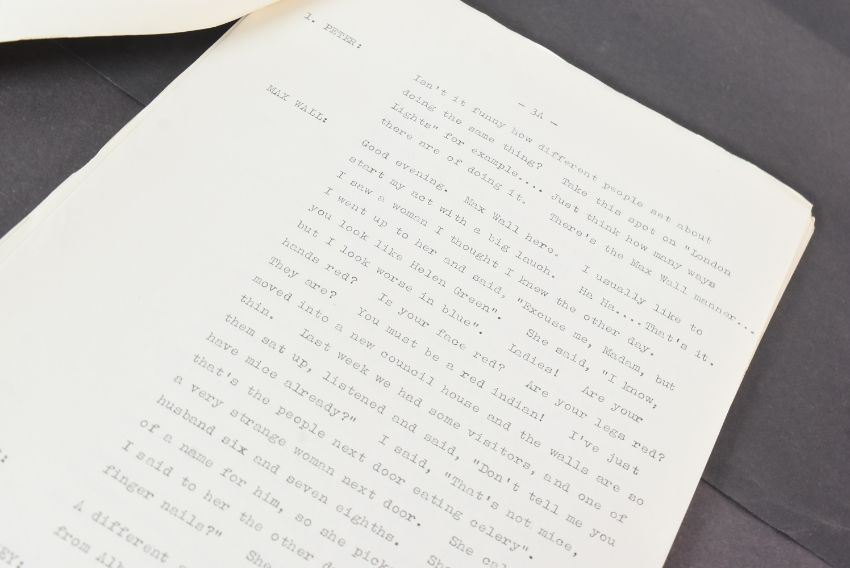 - 3A -
1. PETER: Isn't it funny how different people set about
doing the same thing? Take this spot on "London
Lights" for example.... Just think how many ways
there are of doing it. There's the Max Wall manner...
MAX WALL: Good evening. Max Wall here. I usually like to
start my act with a big lauch. Ha Ha....That's it.
I saw a woman I thought I knew the other day.
I went up to her and said, "Excuse me, Madam, but
you look like Helen Green". She said, "I know,
but I look worse in blue". Ladies! Are your
hands red? Is your face red? Are your legs red?
They are? You must be a red indian! I've just
moved into a new council house and the walls are so
thin. Last week we had some visitors, and one of
them sat up, listened and said, "Don't tell me you
have mice already?" I said, "That's not mice,
that's the people next door eating celery".
a very strange woman next door. She
husband six and seven eighths. She
of a name for him, so she
I said to her the other
finger nails?" She
A different
from